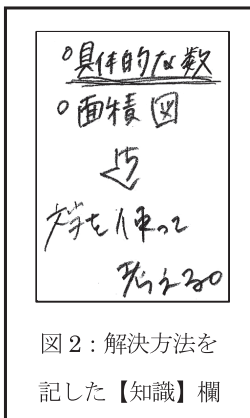 ○具体的な数
○面積図
文字を使って
考える。
図2：解決方法を
記した【知識】欄